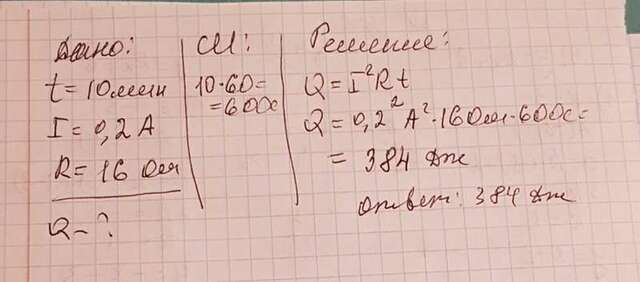 Дано:
t = 10 мин
I = 0,2 А
R = 16 Ом
Q - ?
СИ:
10·60=
=600с
Решение:
Q = I²Rt
Q = 0,2² А²·16Ом·600с=
= 384 Дж
Ответ: 384 Дж